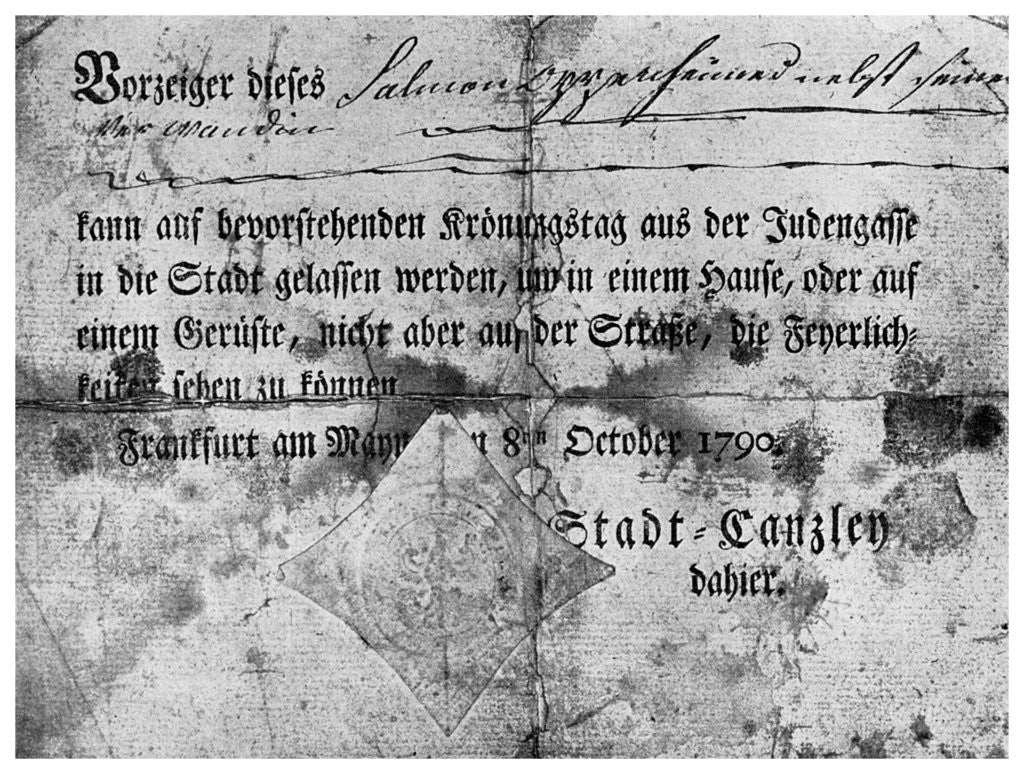 Vorzeiger dieses Salmon Oppenheimer nebst seiner
Verwandin
kann auf bevorstehenden Krönungstag aus der Judengasse
in die Stadt gelassen werden, um in einem Hause, oder auf
einem Gerüste, nicht aber auf der Straße, die Feyerlich-
keiten sehen zu können
Frankfurt am Mayn 8ten October 1790.
Stadt-Canzley
dahier.